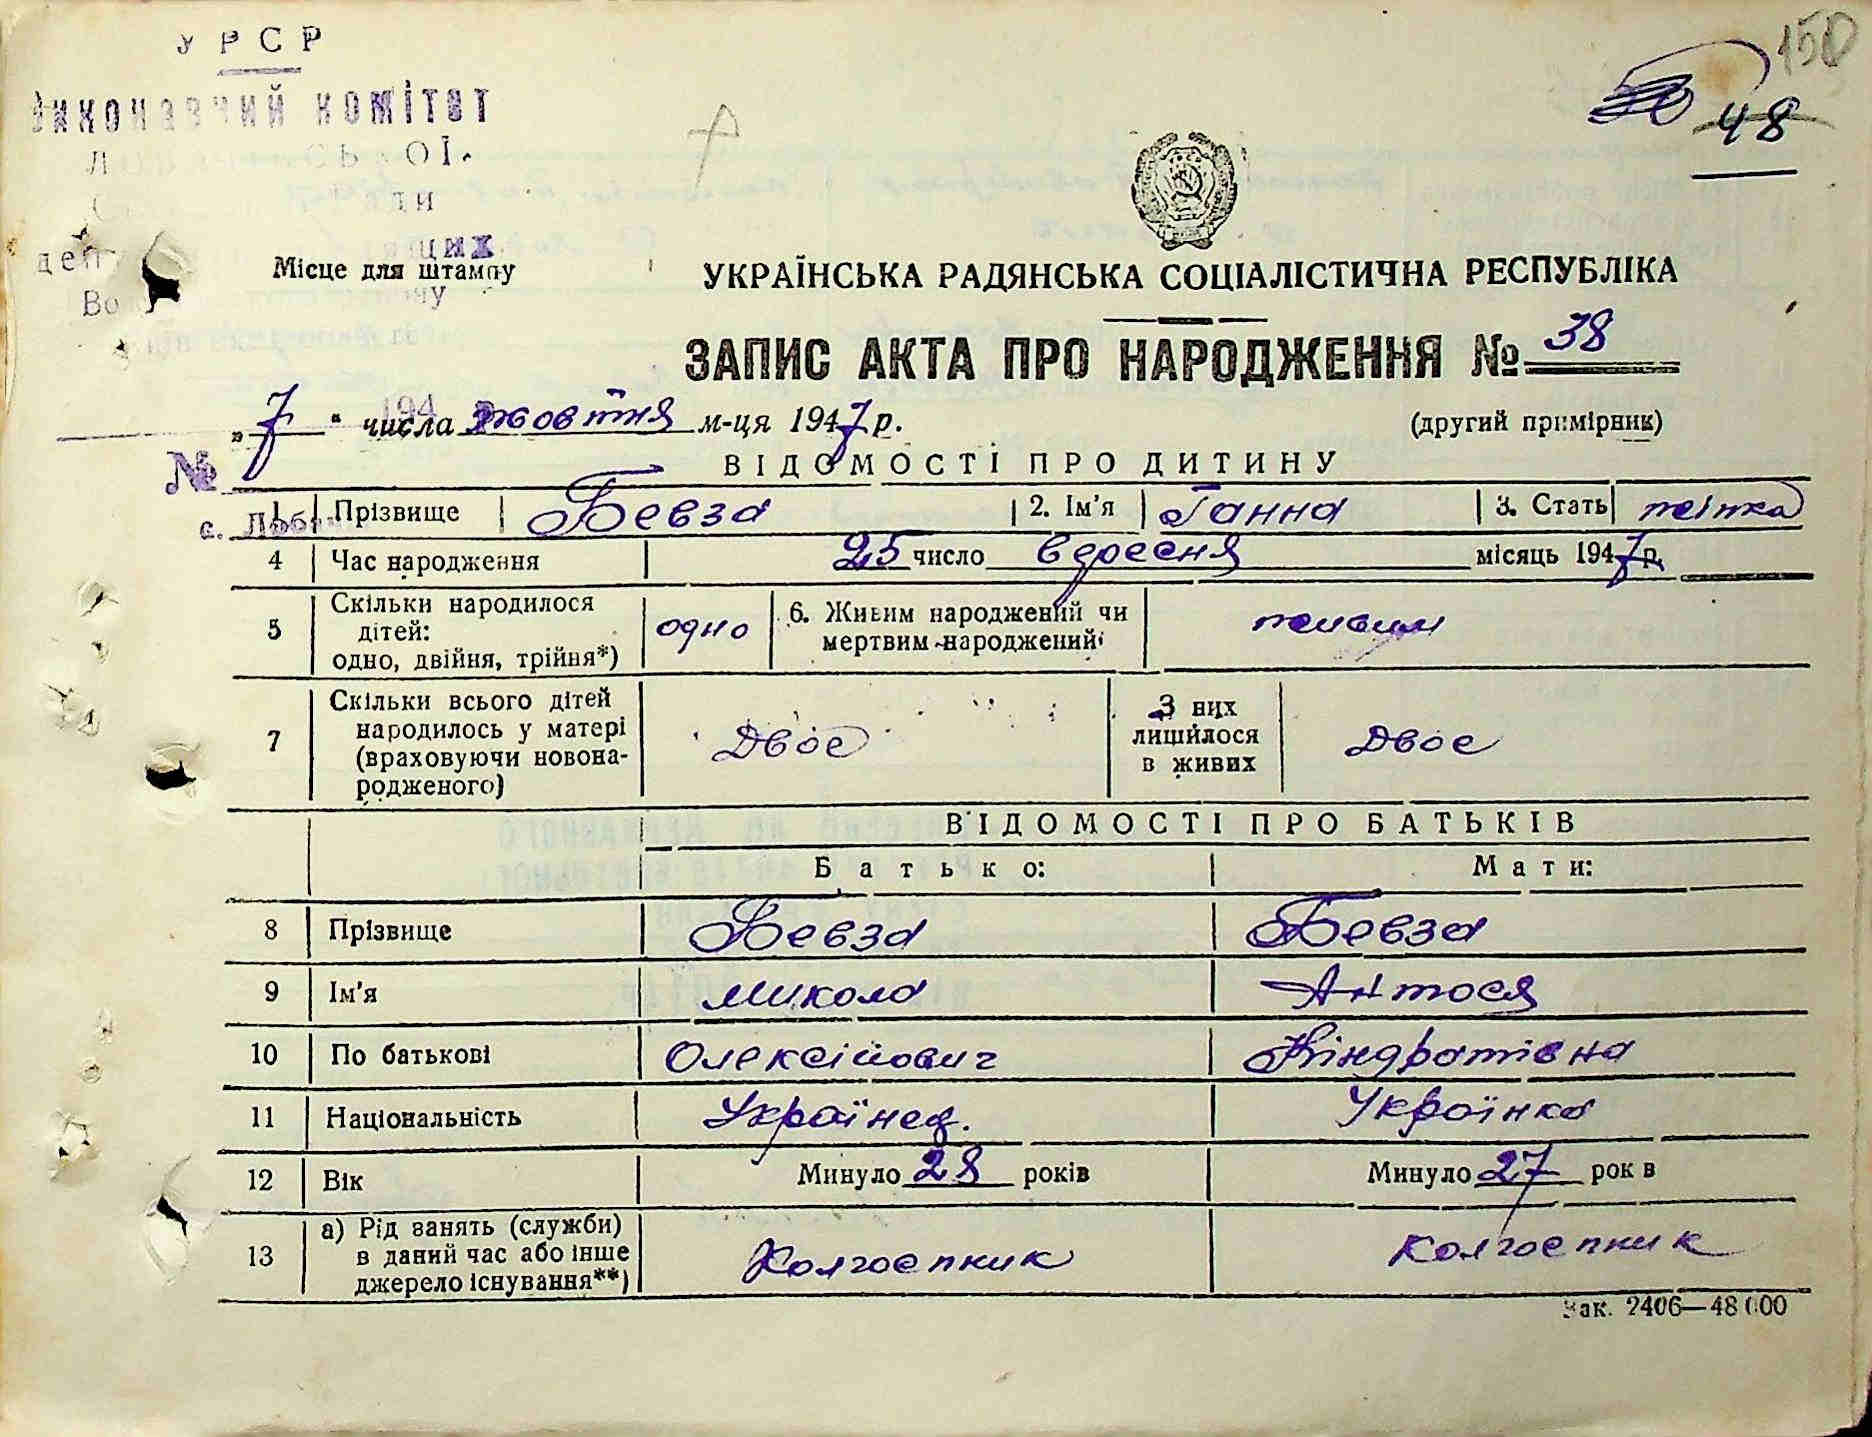 УРСР
150
Виконавчий комітет
48
Місце для штампу
УКРАЇНСЬКА РАДЯНСЬКА СОЦІАЛІСТИЧНА РЕСПУБЛІКА
ЗАПИС АКТА ПРО НАРОДЖЕННЯ № 38
„7“ числа жовтня м-ця 1947 р. (другий примірник)
№
ВІДОМОСТІ ПРО ДИТИНУ
1 Прізвище Бевза 2. Ім'я Ганна 3. Стать жінка
с.
4 Час народження 25 число вересня місяць 1947 р.
5 Скільки народилося дітей: одно, двійня, трійня*) одно 6. Живим народжений чи мертвим народжений живим
7 Скільки всього дітей народилось у матері (враховуючи новонародженого) Двоє З них лишилося в живих Двоє
ВІДОМОСТІ ПРО БАТЬКІВ
Батько: Мати:
8 Прізвище Бевза Бевза
9 Ім'я Микола Антося
10 По батькові Олексійович Кіндратівна
11 Національність Українец. Українка
12 Вік Минуло 28 років Минуло 27 років
13 а) Рід занять (служби) в даний час або інше джерело існування**) Колгоспник Колгоспник
Зак. 2406—48000